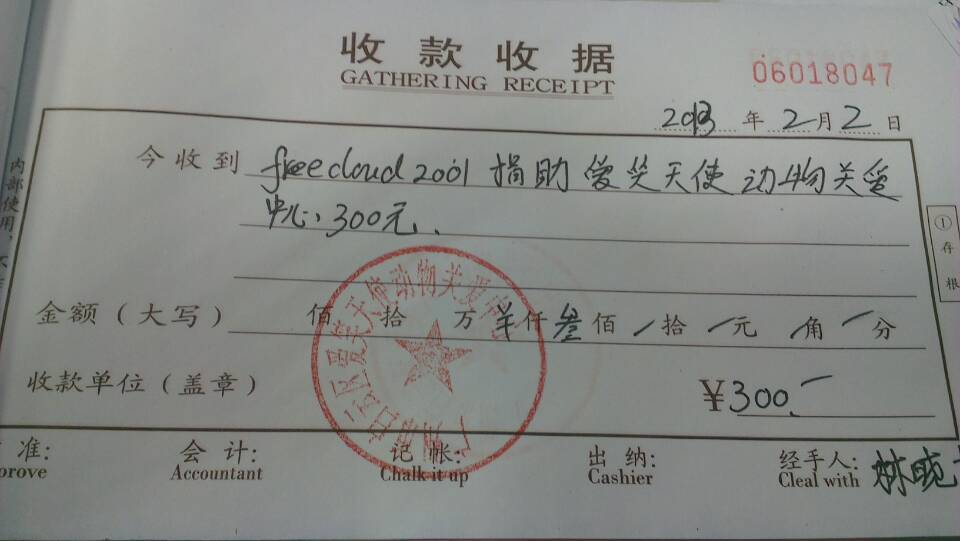 收款收据
GATHERING RECEIPT
06018047
2013年2月2日
今收到 freecloud2001 捐助 爱笑天使 动物关爱
中心 300元.
① 存根
金额(大写) 佰 拾 万 羊仟 叁佰 / 拾 / 元 / 角 / 分
收款单位(盖章) ¥300.
准: 会计: 记帐: 出纳: 经手人: 林晓
prove Accountant Chalk it up Cashier Cleal with
内部使用、不